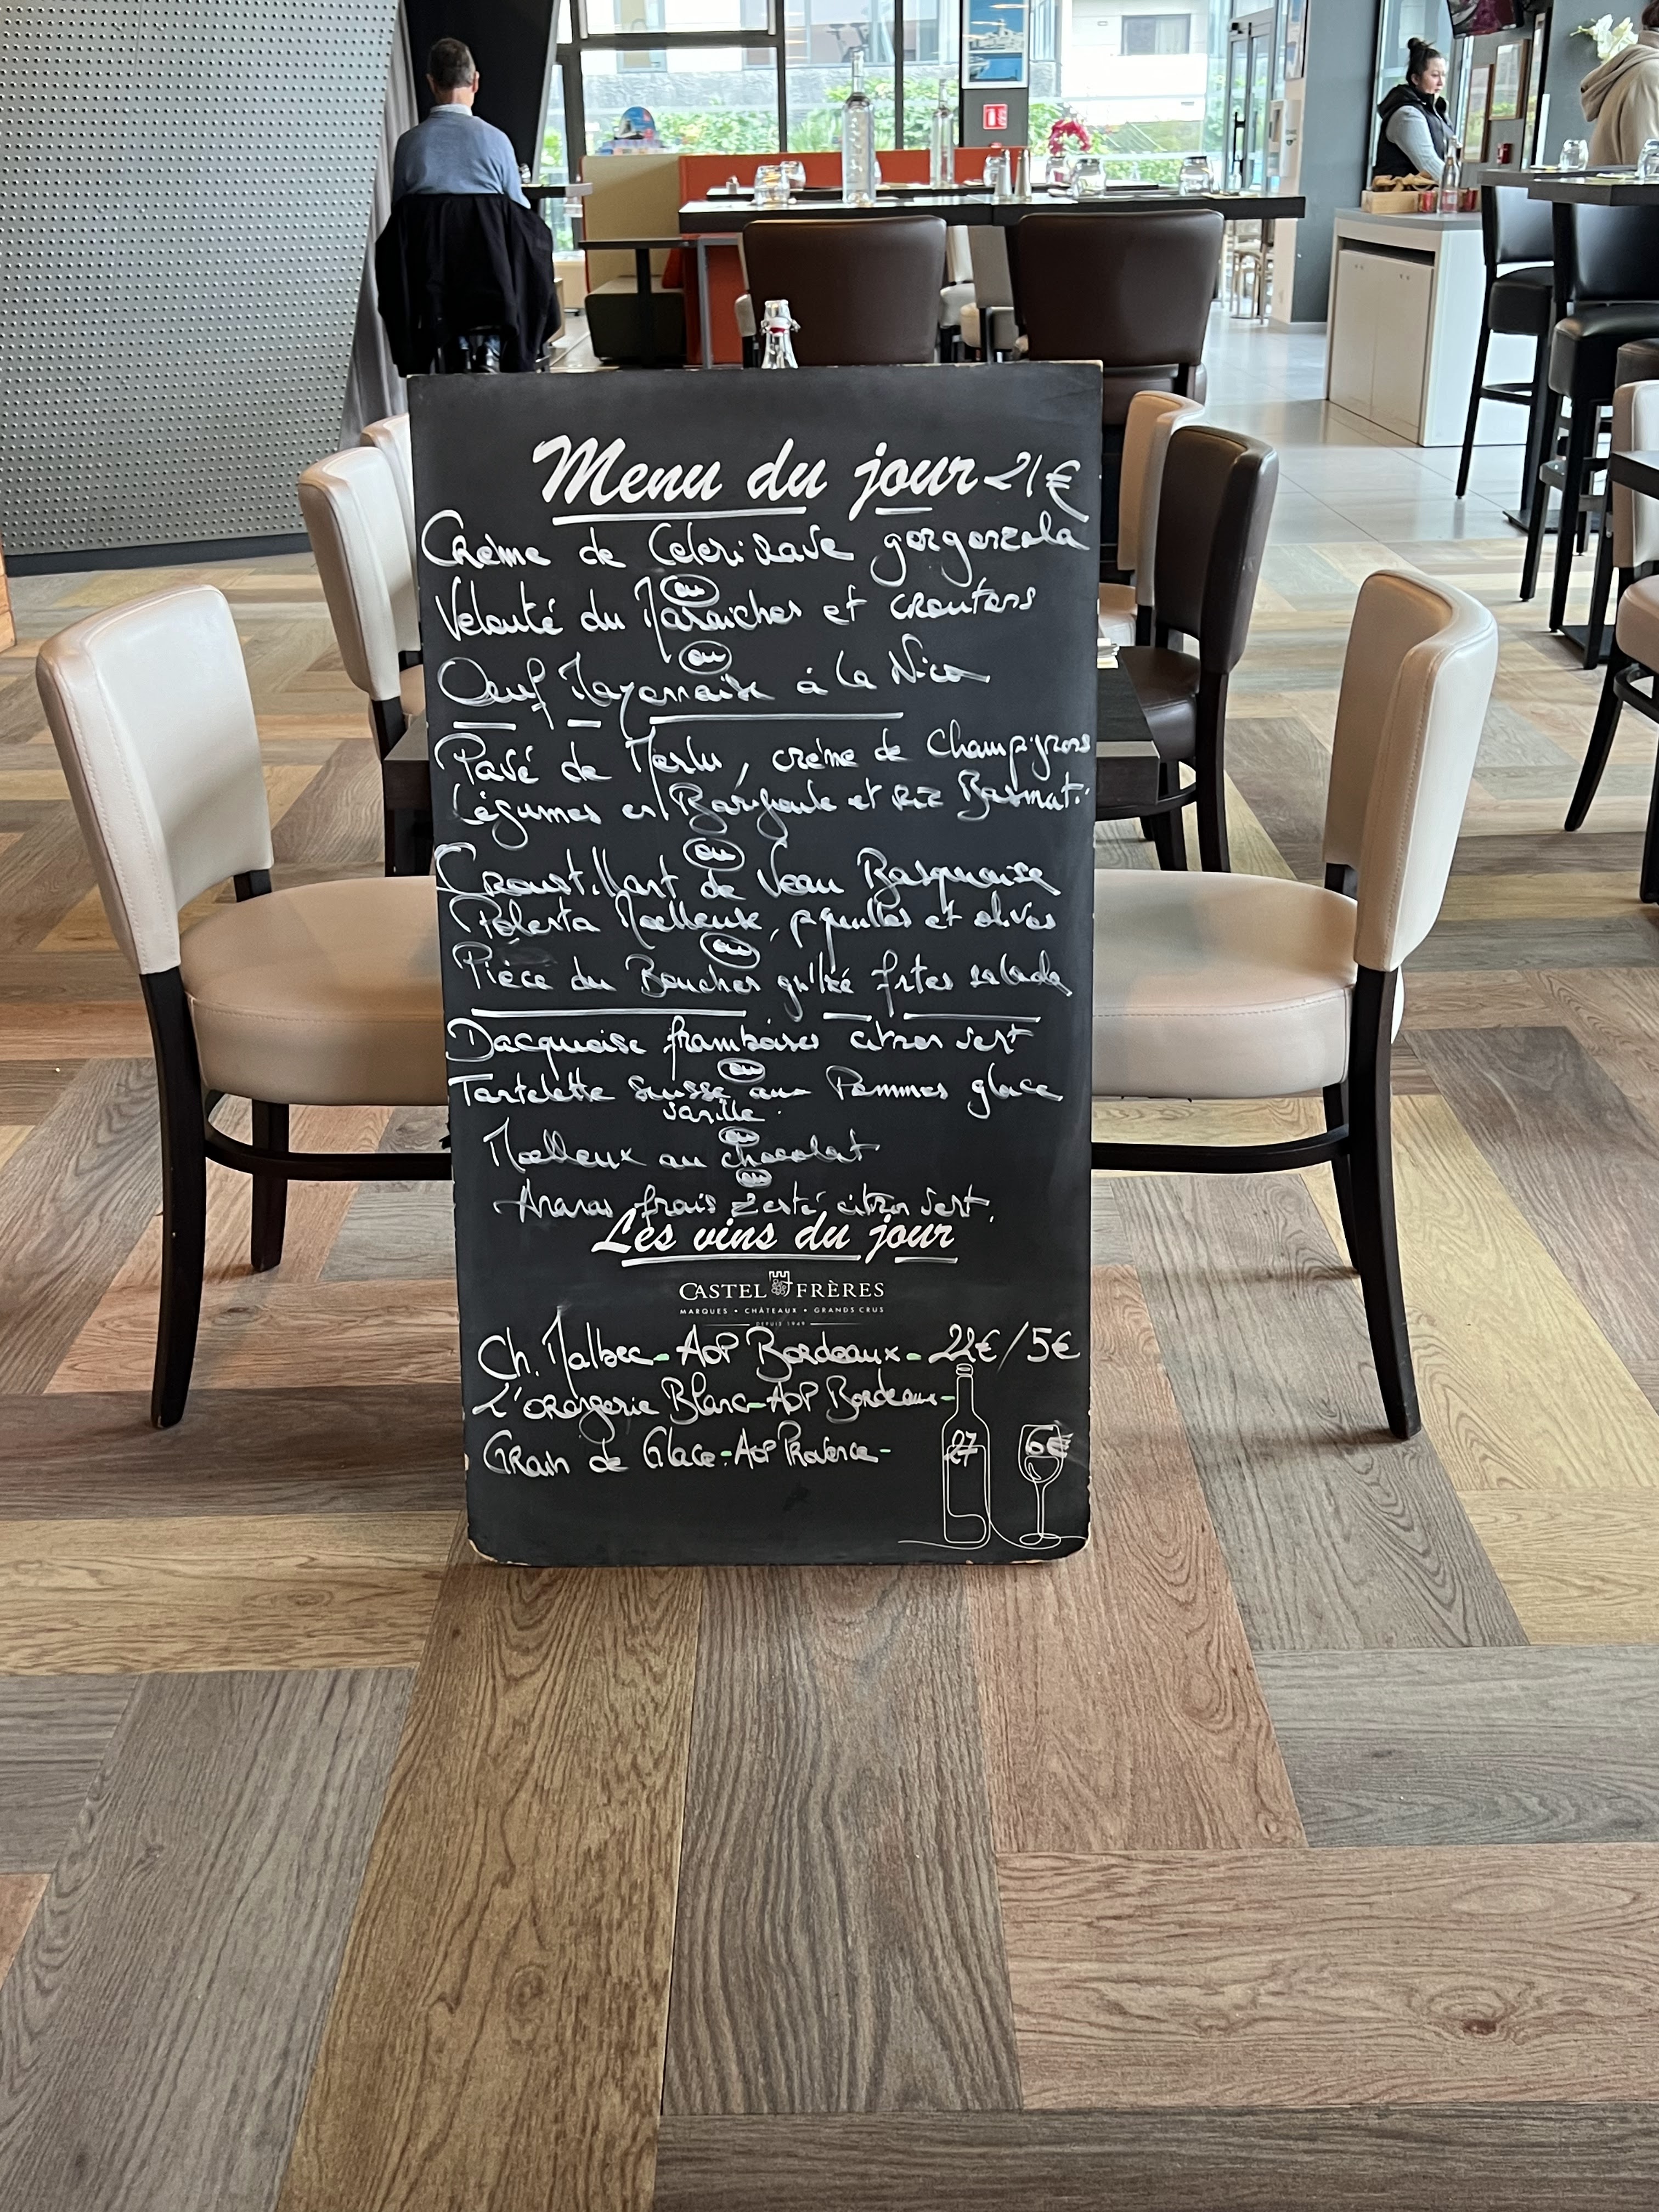 Menu du jour 21€
Crème de Celeri Rave gorgonzola
ou
Velouté du Maraicher et croutons
ou
Oeuf Mayonnaise à la Nico
Pavé de Merlu, crème de champignons
Légumes en Barigoule et Riz Basmati
ou
Croustillant de Veau Basquaise
Polenta Moelleuse, piquillos et olives
ou
Pièce du Boucher grillé frites salade
Dacquoise framboises citron vert
ou
Tartelette Suisse aux Pommes glace
vanille
ou
Moelleux au chocolat
ou
Ananas frais zesté citron vert.
Les vins du jour
CASTEL FRÈRES
MARQUES • CHÂTEAUX • GRANDS CRUS
DEPUIS 1949
Ch. Malbec - AOP Bordeaux - 22€/5€
L'orangerie Blanc - AOP Bordeaux -
Grain de Glace - AOP Provence - 27 6€